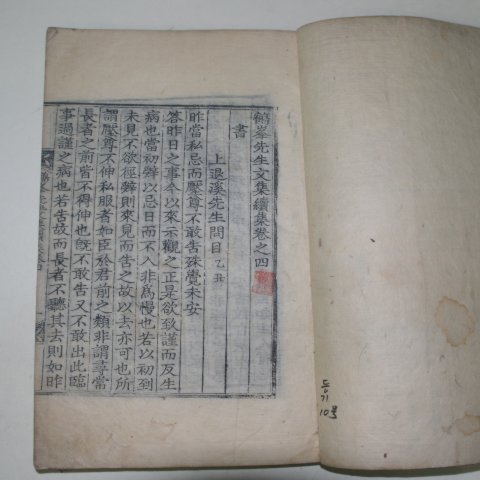 鶴峯先生文集續集卷之四
書
上退溪先生問目 乙丑
昨當私忌而壓尊不敢告殊覺未安
答昨日之事今以來示觀之正是欲致謹而反生
病也當初辭以忌日而不入非爲慢也若以初到
未見不欲徑辭則來見而告之故以去亦可也所
謂壓尊不伸私服者如臣於君前之類非謂尋常
長者之前皆不得伸也旣不敢告又不敢出此臨
事過謹之病也若告故而長者不聽其去則如昨
등기
10호